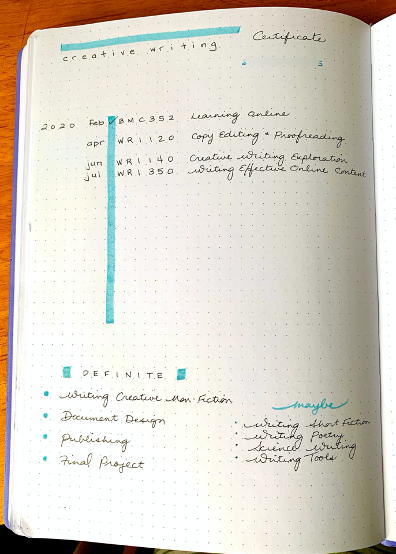 creative writing Certificate
2020 Feb ✓ BMC352 Learning Online
apr WRI120 Copy Editing + Proofreading
jun WRI140 Creative Writing Exploration
jul WRI350 Writing Effective Online Content
DEFINITE
• Writing Creative Non-Fiction
• Document Design
• Publishing
• Final Project
maybe
• Writing Short Fiction
• Writing Poetry
• Science Writing
• Writing Tools